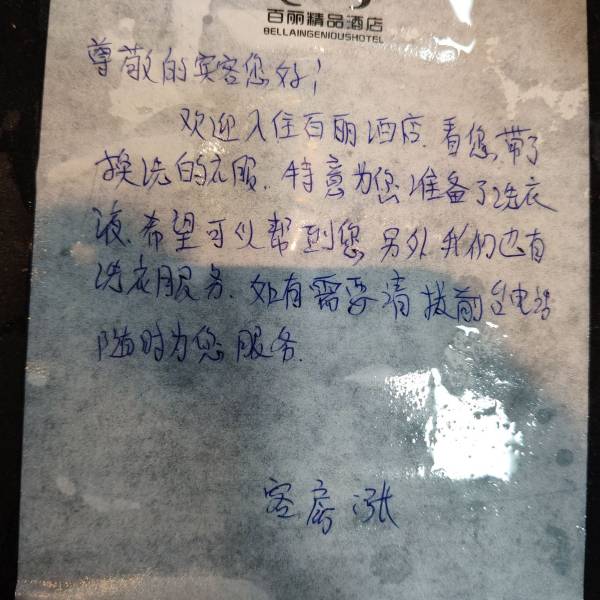 百丽精品酒店
BELLAINGENIOUSHOTEL
尊敬的宾客您好!
欢迎入住百丽酒店.看您带了
换洗的衣服.特意为您准备了洗衣
液.希望可以帮到您.另外我们也有
洗衣服务.如有需要请拨前台电话
随时为您服务.
客房涨